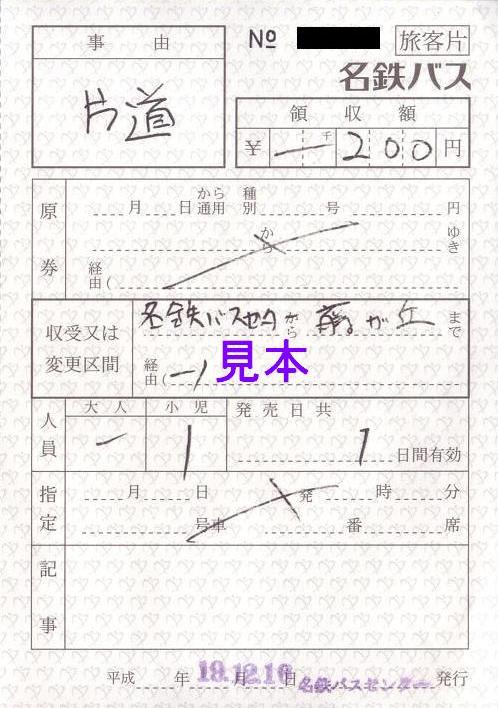 事由
片道
№
旅客片
名鉄バス
領収額
￥ー千200円
原券
月 日から通用 種別 号 円
から ゆき
経由(
収受又は変更区間
名鉄バスセンタから 藤が丘 まで
経由(ー)
見本
人員
大人 小児 発売日共
ー 1 1日間有効
指定
月 日 発 時 分
号車 番 席
記事
平成 年 月 日 発行
19.12.16 名鉄バスセンター